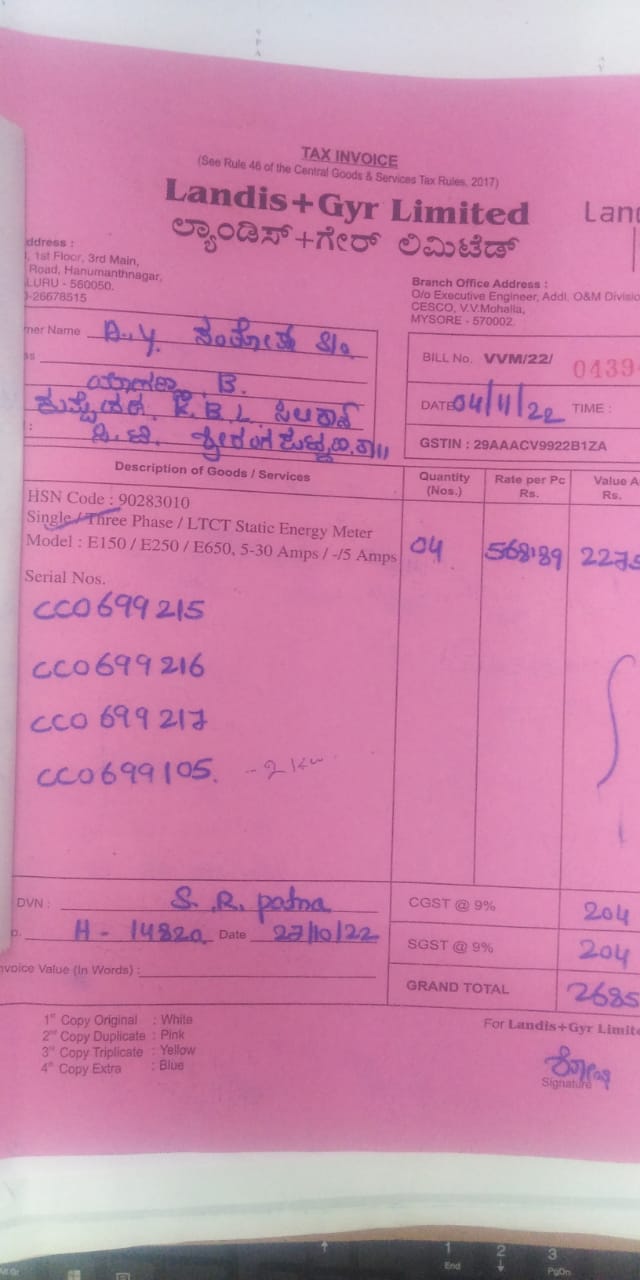 TAX INVOICE
(See Rule 46 of the Central Goods & Services Tax Rules, 2017)
Landis+Gyr Limited
ಲ್ಯಾಂಡಿಸ್+ಗೇರ್ ಲಿಮಿಟೆಡ್
Land
ddress :
, 1st Floor, 3rd Main,
Road, Hanumanthnagar,
LURU - 560050.
-26678515
Branch Office Address :
O/o Executive Engineer, Addl. O&M Divisio
CESCO, V.V.Mohalla,
MYSORE - 570002.
mer Name
BILL No. VVM/22/ 0439
DATE 04/11/22 TIME :
GSTIN : 29AAACV9922B1ZA
Description of Goods / Services
Quantity (Nos.)
Rate per Pc Rs.
Value A Rs.
HSN Code : 90283010
Single / Three Phase / LTCT Static Energy Meter
Model : E150 / E250 / E650, 5-30 Amps / -/5 Amps 04 568.89 2275
Serial Nos.
CCO699215
CCO699216
CCO699217
CCO699105. - 2 Kw
DVN : S.R. patna
H - 14820 Date 27/10/22
nvoice Value (In Words) :
CGST @ 9% 204
SGST @ 9% 204
GRAND TOTAL 2685
1st Copy Original : White
2nd Copy Duplicate : Pink
3rd Copy Triplicate : Yellow
4th Copy Extra : Blue
For Landis+Gyr Limite
Signature
1 End
2
3 PgDn